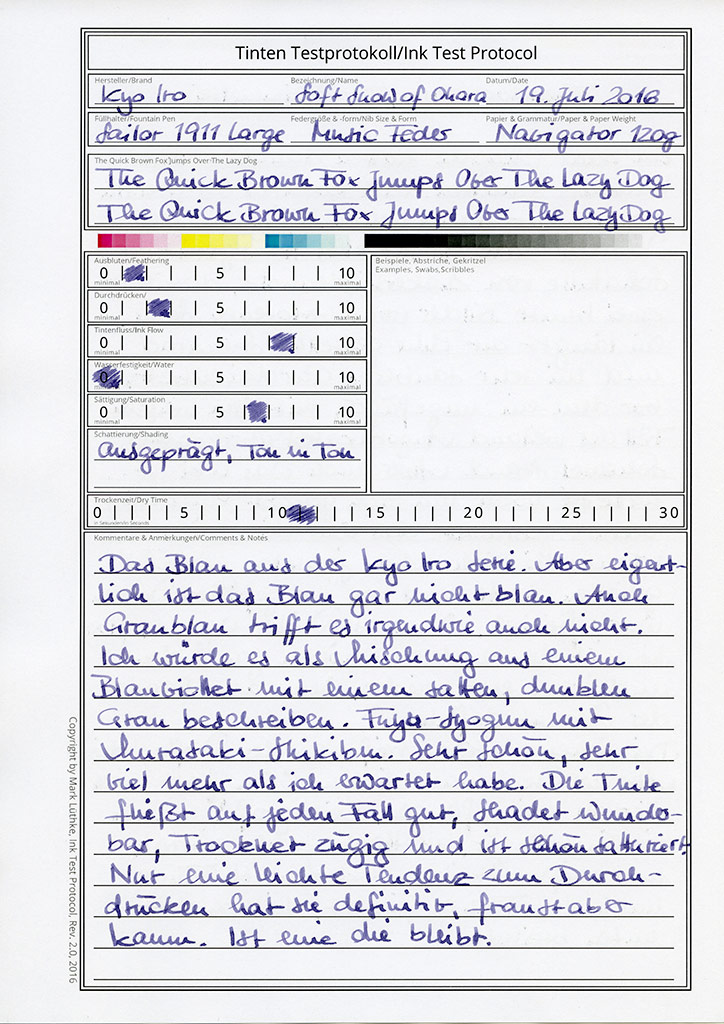 Tinten Testprotokoll/Ink Test Protocol
Hersteller/Brand Bezeichnung/Name Datum/Date
Kyo Iro Soft Snow of Ohara 19. Juli 2016
Füllhalter/Fountain Pen Federgröße & -form/Nib Size & Form Papier & Grammatur/Paper & Paper Weight
Sailor 1911 Large Music Feder Navigator 120g
The Quick Brown Fox Jumps Over The Lazy Dog
The Quick Brown Fox Jumps Over The Lazy Dog
The Quick Brown Fox Jumps Over The Lazy Dog
Ausbluten/Feathering
0 | | | | 5 | | | | 10
minimal maximal
Durchdrücken/
0 | | | | 5 | | | | 10
minimal maximal
Tintenfluss/Ink Flow
0 | | | | 5 | | | | 10
minimal maximal
Wasserfestigkeit/Water
0 | | | | 5 | | | | 10
minimal maximal
Sättigung/Saturation
0 | | | | 5 | | | | 10
minimal maximal
Schattierung/Shading
ausgeprägt, Ton in Ton
Beispiele, Abstriche, Gekritzel
Examples, Swabs,Scribbles
Trockenzeit/Dry Time
0 | | | | 5 | | | | 10 | | | | 15 | | | | 20 | | | | 25 | | | | 30
in Sekunden/in Seconds
Kommentare & Anmerkungen/Comments & Notes
Das Blau aus der Kyo Iro Serie. Aber eigent-
lich ist das Blau gar nicht blau. Auch
Graublau trifft es irgendwie auch nicht.
Ich würde es als Mischung aus einem
Blauviolet mit einem satten, dunklen
Grau beschreiben. Fuyu-Syogun mit
Murasaki-Shikibu. Sehr schön, sehr
viel mehr als ich erwartet habe. Die Tinte
fließt auf jeden Fall gut, shadet wunder-
bar, Trocknet zügig und ist schön satturiert.
Nur eine leichte Tendenz zum Durch-
drücken hat sie definitiv, franst aber
kaum. Ist eine die bleibt.
Copyright by Mark Lüthke, Ink Test Protocol, Rev. 2.0, 2016